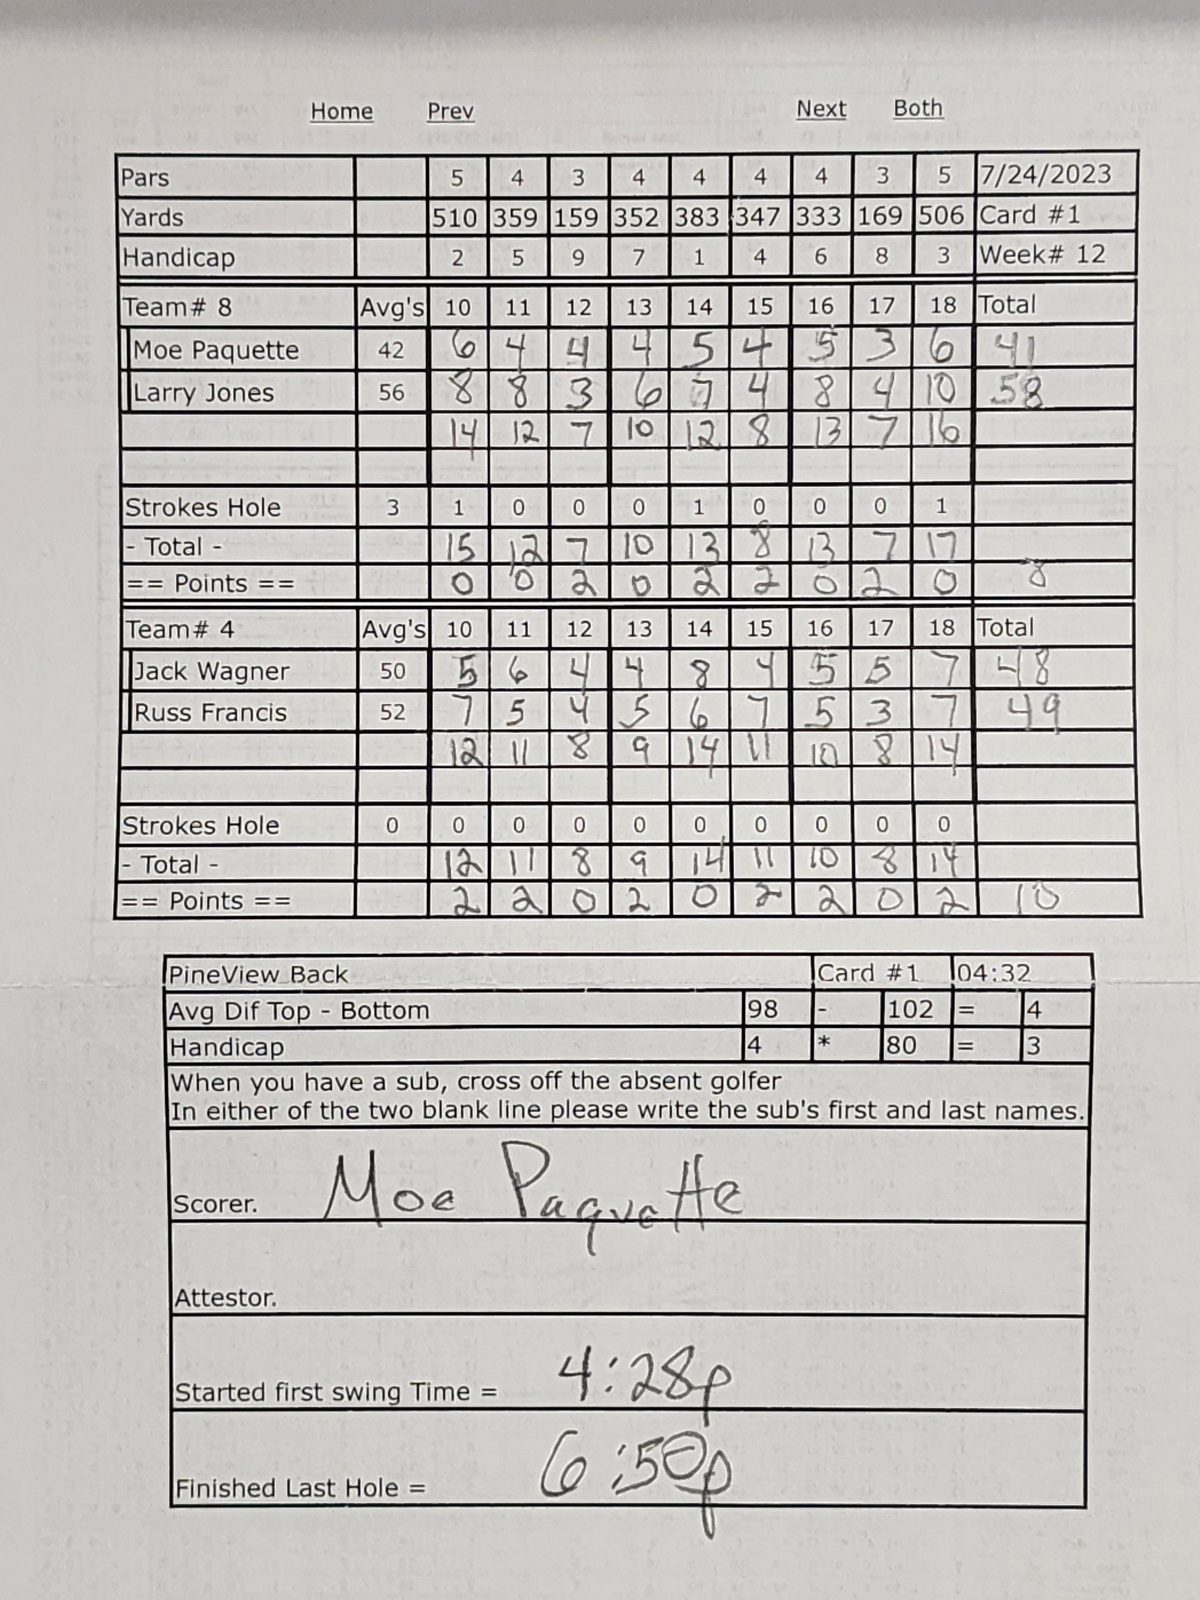 Home Prev Next Both
Pars 5 4 3 4 4 4 4 3 5 7/24/2023
Yards 510 359 159 352 383 347 333 169 506 Card #1
Handicap 2 5 9 7 1 4 6 8 3 Week# 12
Team# 8 Avg's 10 11 12 13 14 15 16 17 18 Total
Moe Paquette 42 6 4 4 4 5 4 5 3 6 41
Larry Jones 56 8 8 3 6 7 4 8 4 10 58
14 12 7 10 12 8 13 7 16
Strokes Hole 3 1 0 0 0 1 0 0 0 1
- Total - 15 12 7 10 13 8 13 7 17
== Points == 0 0 2 0 2 2 0 2 0 8
Team# 4 Avg's 10 11 12 13 14 15 16 17 18 Total
Jack Wagner 50 5 6 4 4 8 4 5 5 7 48
Russ Francis 52 7 5 4 5 6 7 5 3 7 49
12 11 8 9 14 11 10 8 14
Strokes Hole 0 0 0 0 0 0 0 0 0 0
- Total - 12 11 8 9 14 11 10 8 14
== Points == 2 2 0 2 0 2 2 0 2 10
PineView Back Card #1 04:32
Avg Dif Top - Bottom 98 - 102 = 4
Handicap 4 * 80 = 3
When you have a sub, cross off the absent golfer
In either of the two blank line please write the sub's first and last names.
Scorer. Moe Paquette
Attestor.
Started first swing Time = 4:28p
Finished Last Hole = 6:50p